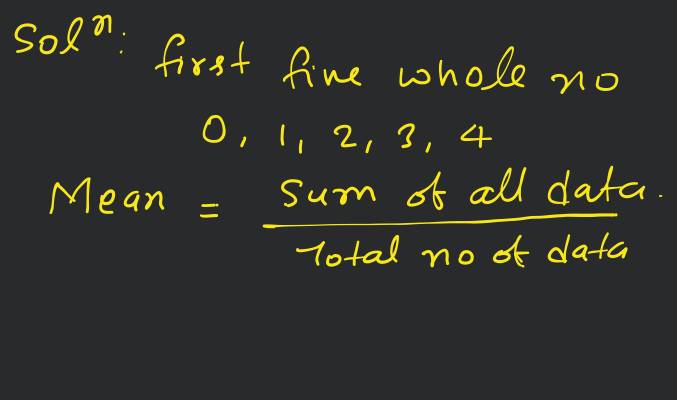 Solⁿ: first five whole no
0, 1, 2, 3, 4
Mean = Sum of all data.
Total no of data